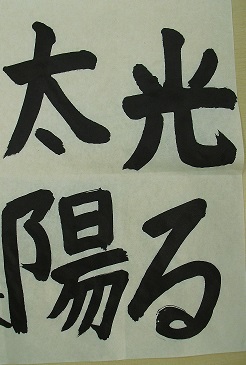 光る
太陽